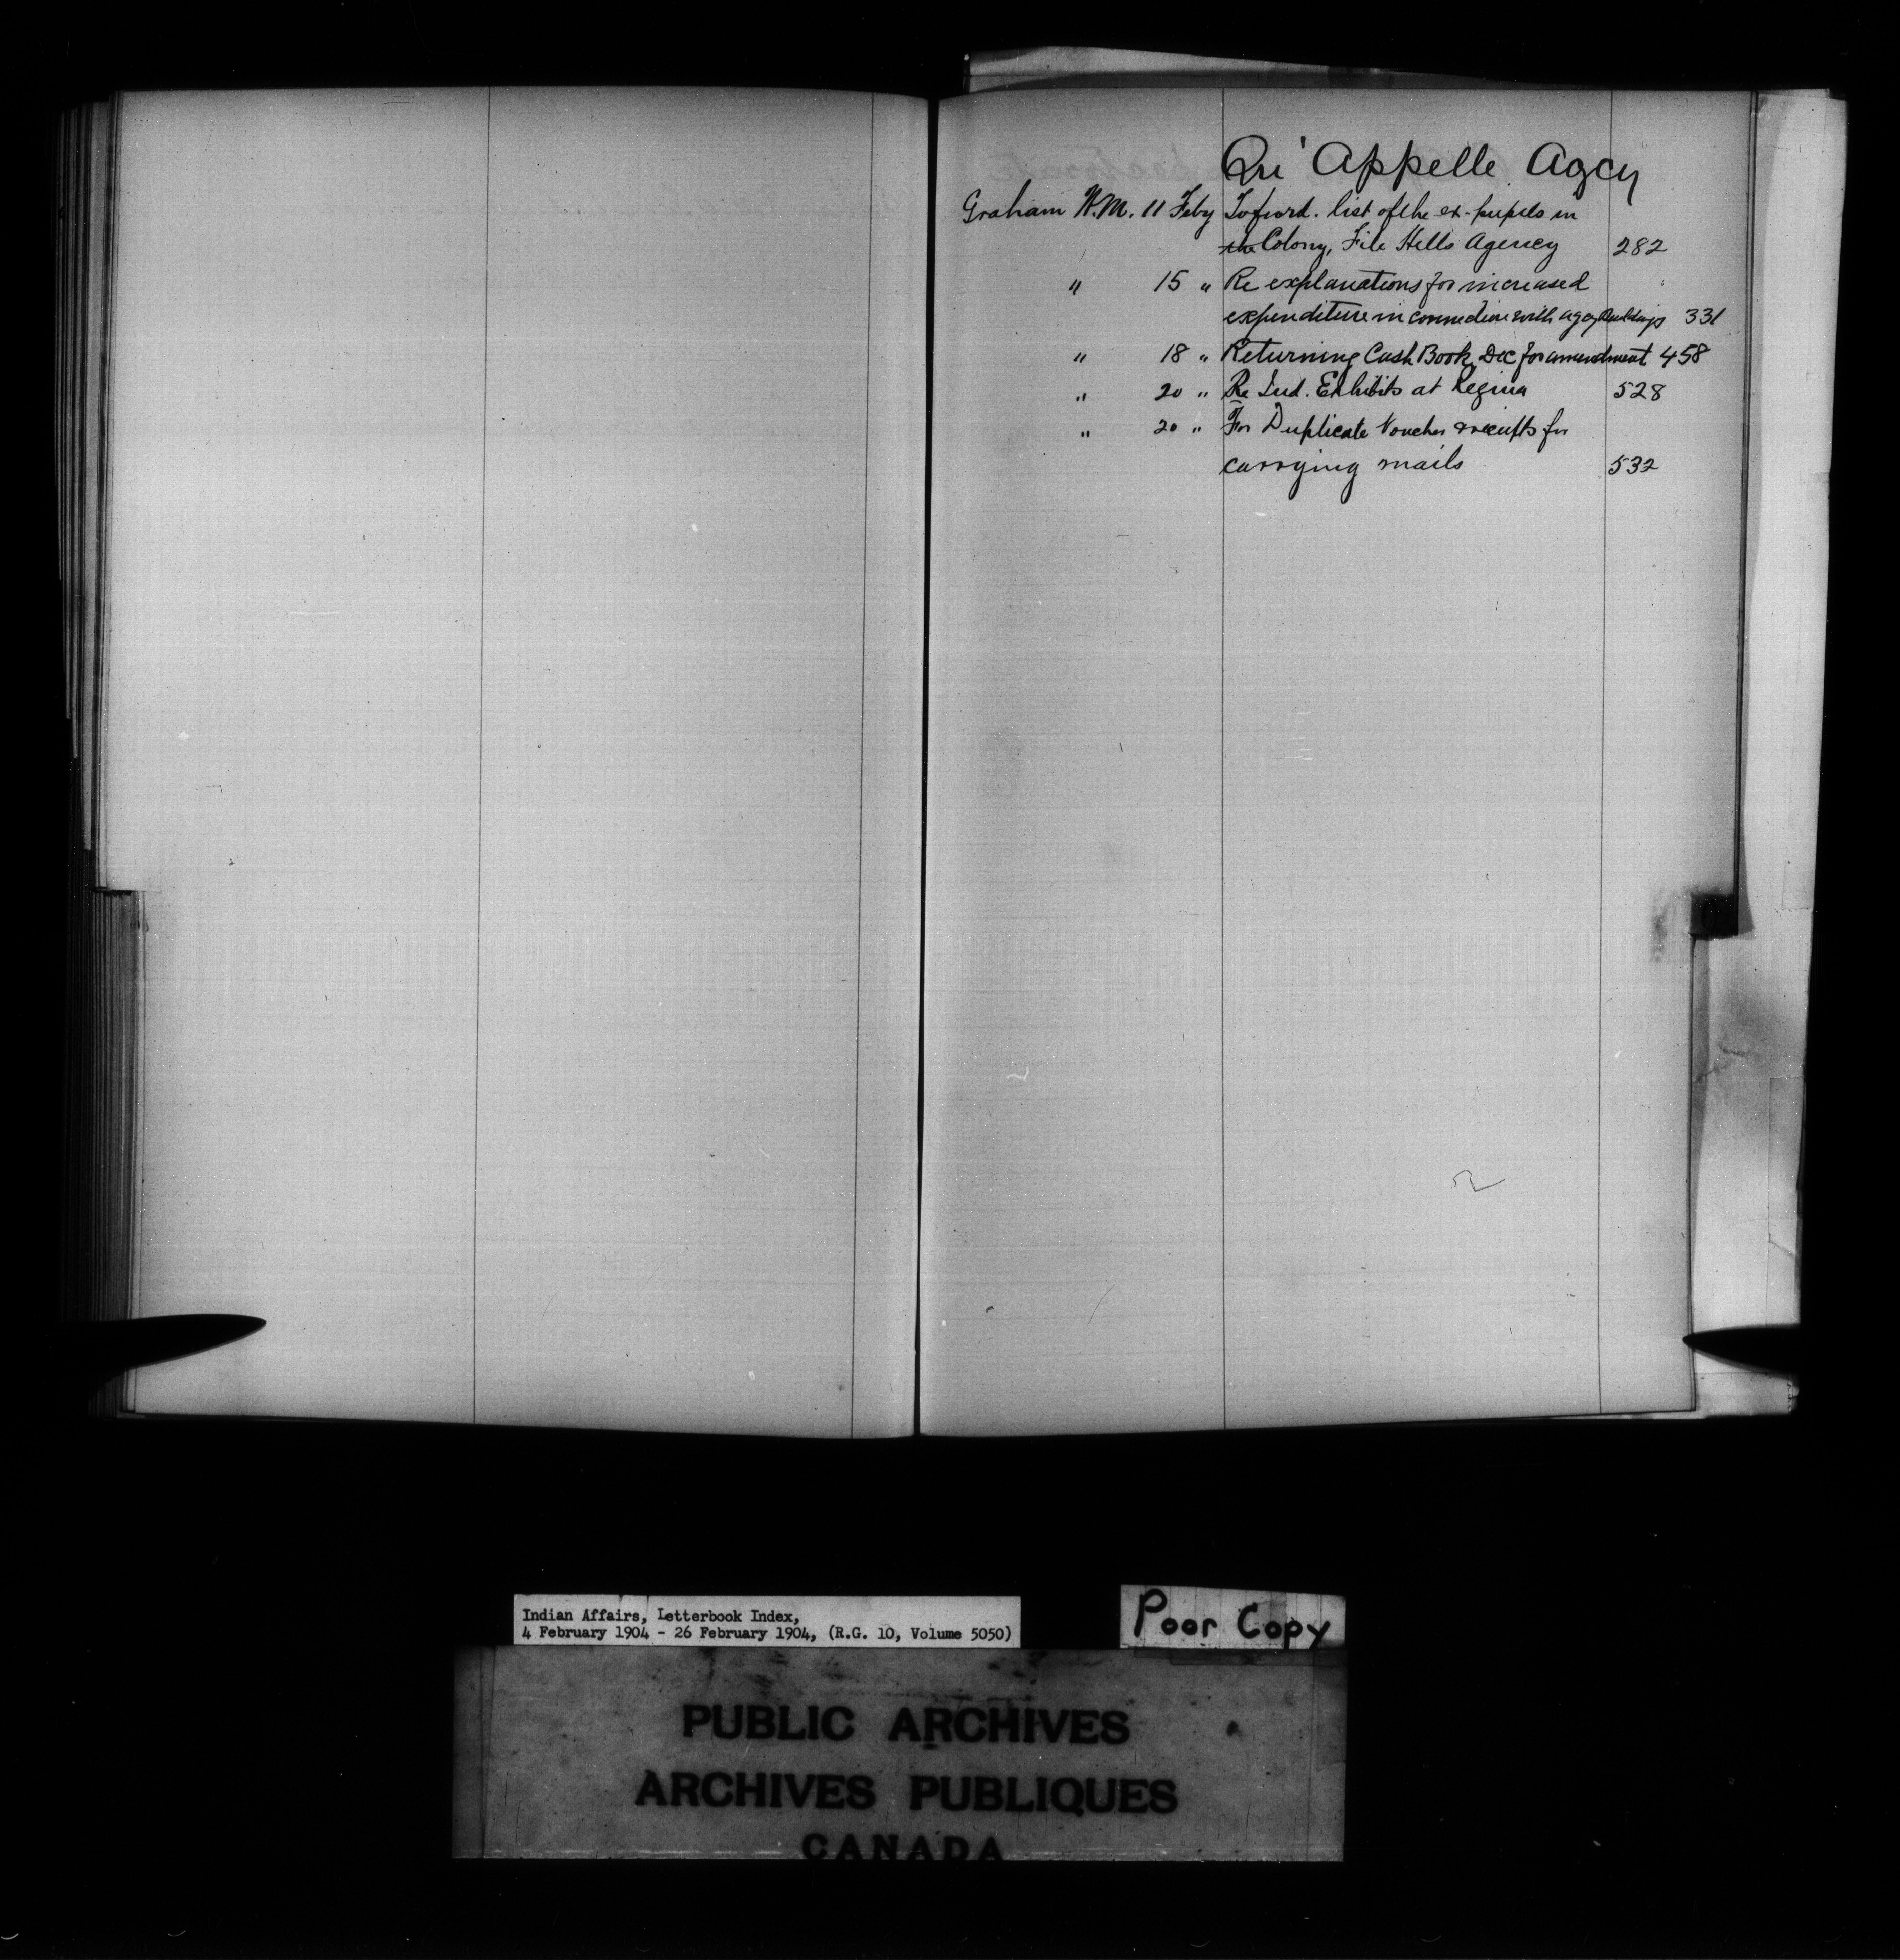 Qu'Appelle Agcy
Graham W.M. 11 Feby To furd. list of the ex-pupils in
the Colony, File Hills Agency 282
" 15 " Re explanations for increased
expenditure in connection with agcy Buildings 331
" 18 " Returning Cash Book, Dec for amendment 458
" 20 " Re Ind. Exhibits at Regina 528
" 20 " For Duplicate Voucher & receipts for
carrying mails 532
Indian Affairs, Letterbook Index,
4 February 1904 - 26 February 1904, (R.G. 10, Volume 5050)
Poor Copy
PUBLIC ARCHIVES
ARCHIVES PUBLIQUES
CANADA